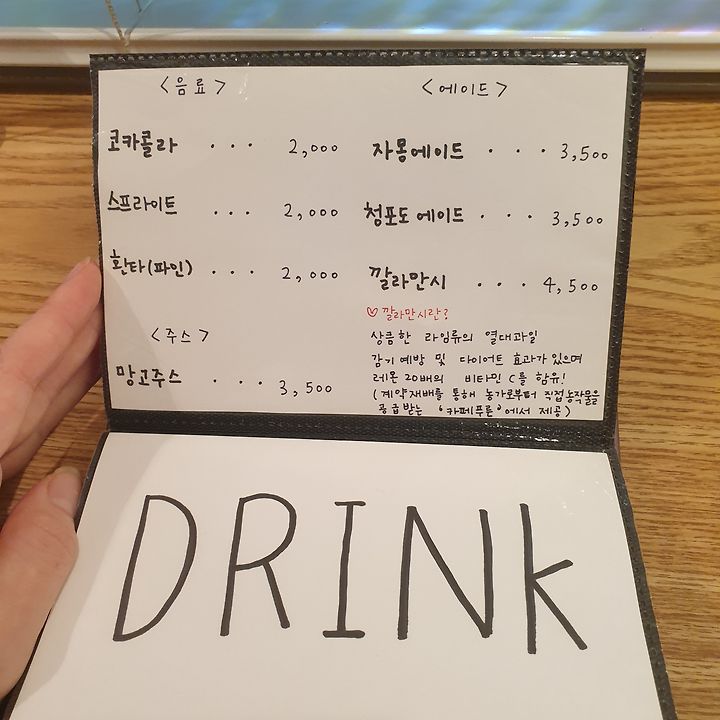 <음료>
코카콜라 ... 2,000
스프라이트 ... 2,000
환타(파인) ... 2,000
<주스>
망고주스 ... 3,500
<에이드>
자몽에이드 ... 3,500
청포도 에이드 ... 3,500
깔라만시 ... 4,500
♡깔라만시란?
상큼한 라임류의 열대과일
감기 예방 및 다이어트 효과가 있으며
레몬 20배의 비타민 C를 함유!
(계약재배를 통해 농가로부터 직접 농작물을
공급받는 '카페푸른'에서 제공)
DRINK